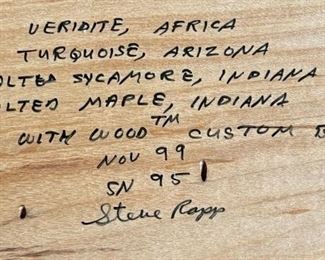 VERIDITE, AFRICA
TURQUOISE, ARIZONA
OLTED SYCAMORE, INDIANA
LTED MAPLE, INDIANA
WITH WOOD™ CUSTOM
NOV 99
SN 95
Steve Rapp